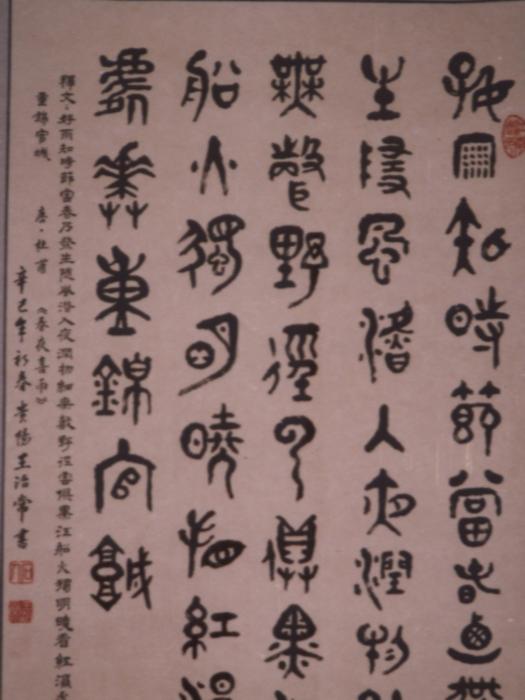 好雨知時節當春乃
生隨風潛入夜潤物
無聲野徑雲俱黑
船火獨明曉看紅濕
處花重錦官城
釋文:好雨知時節當春乃發生隨風潛入夜潤物細無聲野徑雲俱黑江船火獨明曉看紅濕
重錦官城 唐·杜甫《春夜喜雨》
辛巳年初春貴陽王治常書